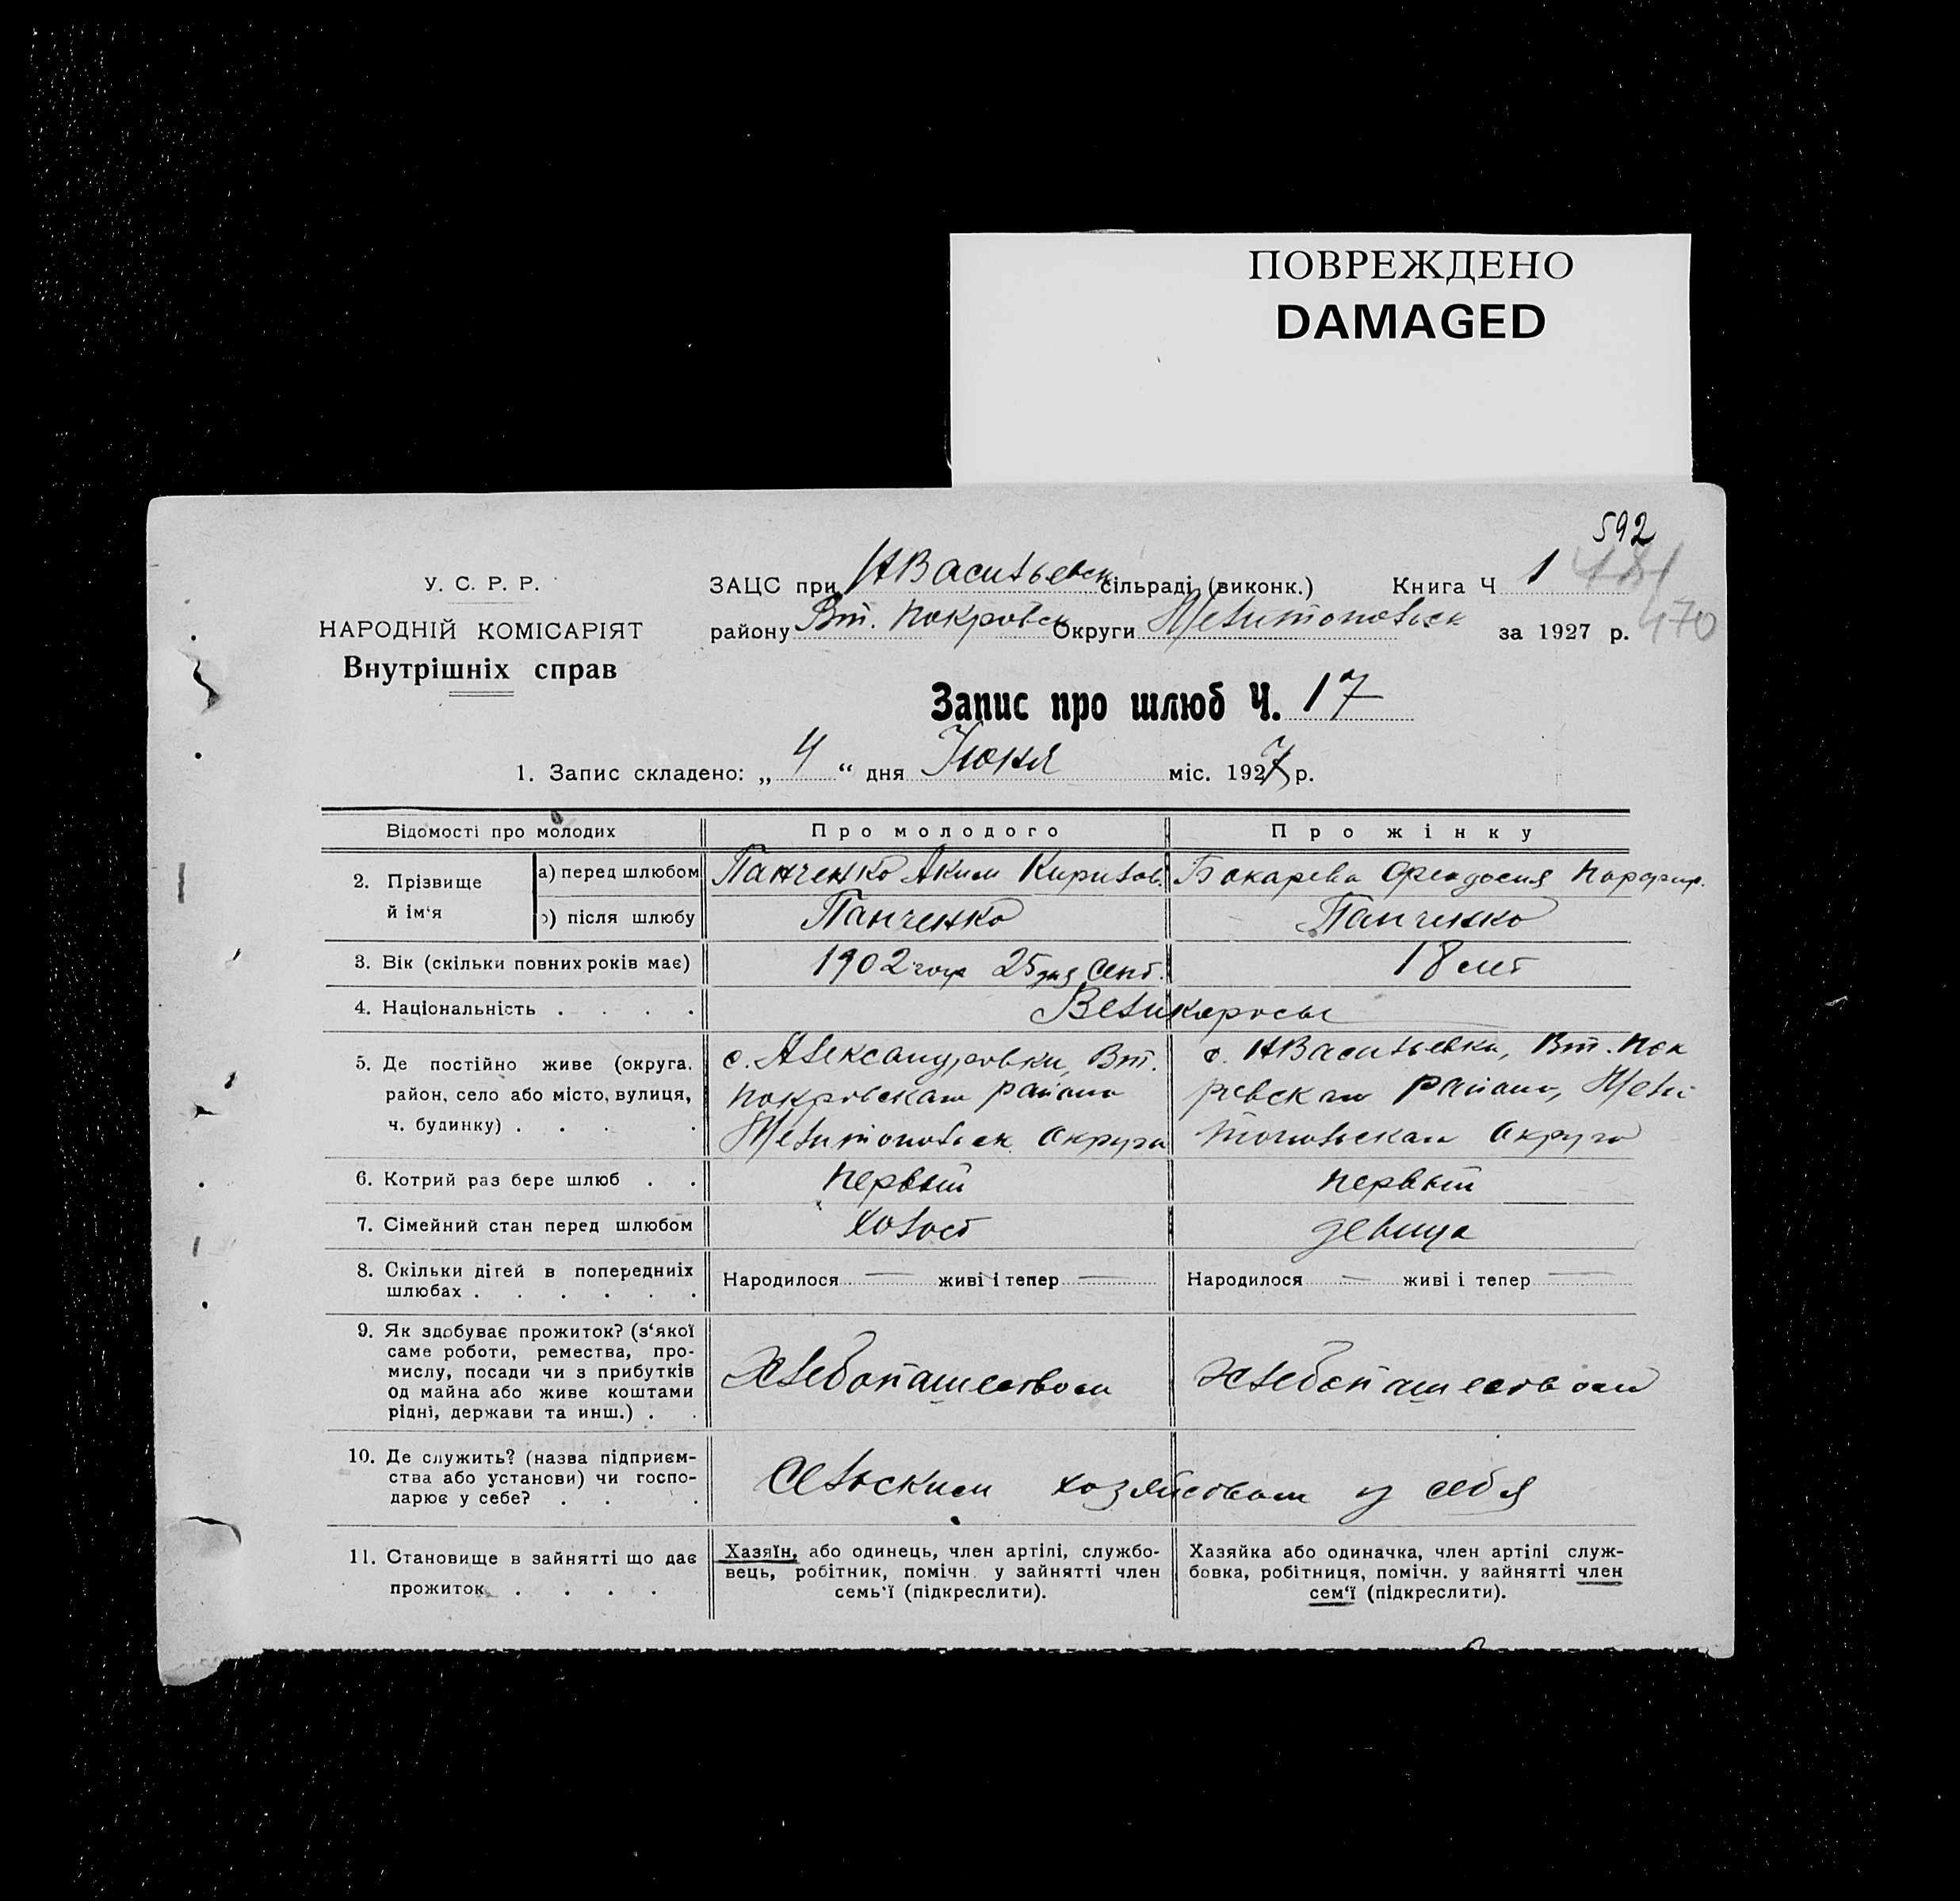 ПОВРЕЖДЕНО
DAMAGED
592
У. С. Р. Р.
НАРОДНІЙ КОМІСАРІЯТ
Внутрішніх справ
ЗАЦС при НВасильевск сільраді (виконк.) Книга Ч 1
району Вт. Покровск Округи Мелитопольск за 1927 р. 470
Запис про шлюб Ч. 17
1. Запис складено: „ 4 “ дня Июня міс. 1927 р.
Відомості про молодих Про молодого Про жінку
2. Прізвище й ім‘я
а) перед шлюбом Панченко Аким Кирилов. Бокарева Феодосия Порфир.
б) після шлюбу Панченко Панченко
3. Вік (скільки повних років має) 1902 года 25 дня Сент. 18 лет
4. Національність . . . . Великоросы
5. Де постійно живе (округа, район, село або місто, вулиця, ч. будинку) . . . .
с. Александровки, Вт.
Покровскаго района
Мелитопольск. Округа
с. НВасильевки, Вт. Пок
ровскаго района, Мели
топольскаго Округа
6. Котрий раз бере шлюб . . первый первый
7. Сімейний стан перед шлюбом холост девица
8. Скільки дітей в попередниіх
шлюбах . . . . . .
Народилося — живі і тепер — Народилося — живі і тепер —
9. Як здобуває прожиток? (з‘якої
саме роботи, ремества, про-
мислу, посади чи з прибутків
од майна або живе коштами
рідні, держави та инш.) . .
Хлебопашеством Хлебопашеством
10. Де служить? (назва підприєм-
ства або установи) чи госпо-
дарює у себе? . . .
Сельским хозяйством у себя
11. Становище в зайнятті що дає
прожиток . . . .
Хазяїн, або одинець, член артілі, службо-
вець, робітник, помічн. у зайнятті член
семь‘ї (підкреслити).
Хазяйка або одиначка, член артілі служ-
бовка, робітниця, помічн. у зайнятті член
сем‘ї (підкреслити).